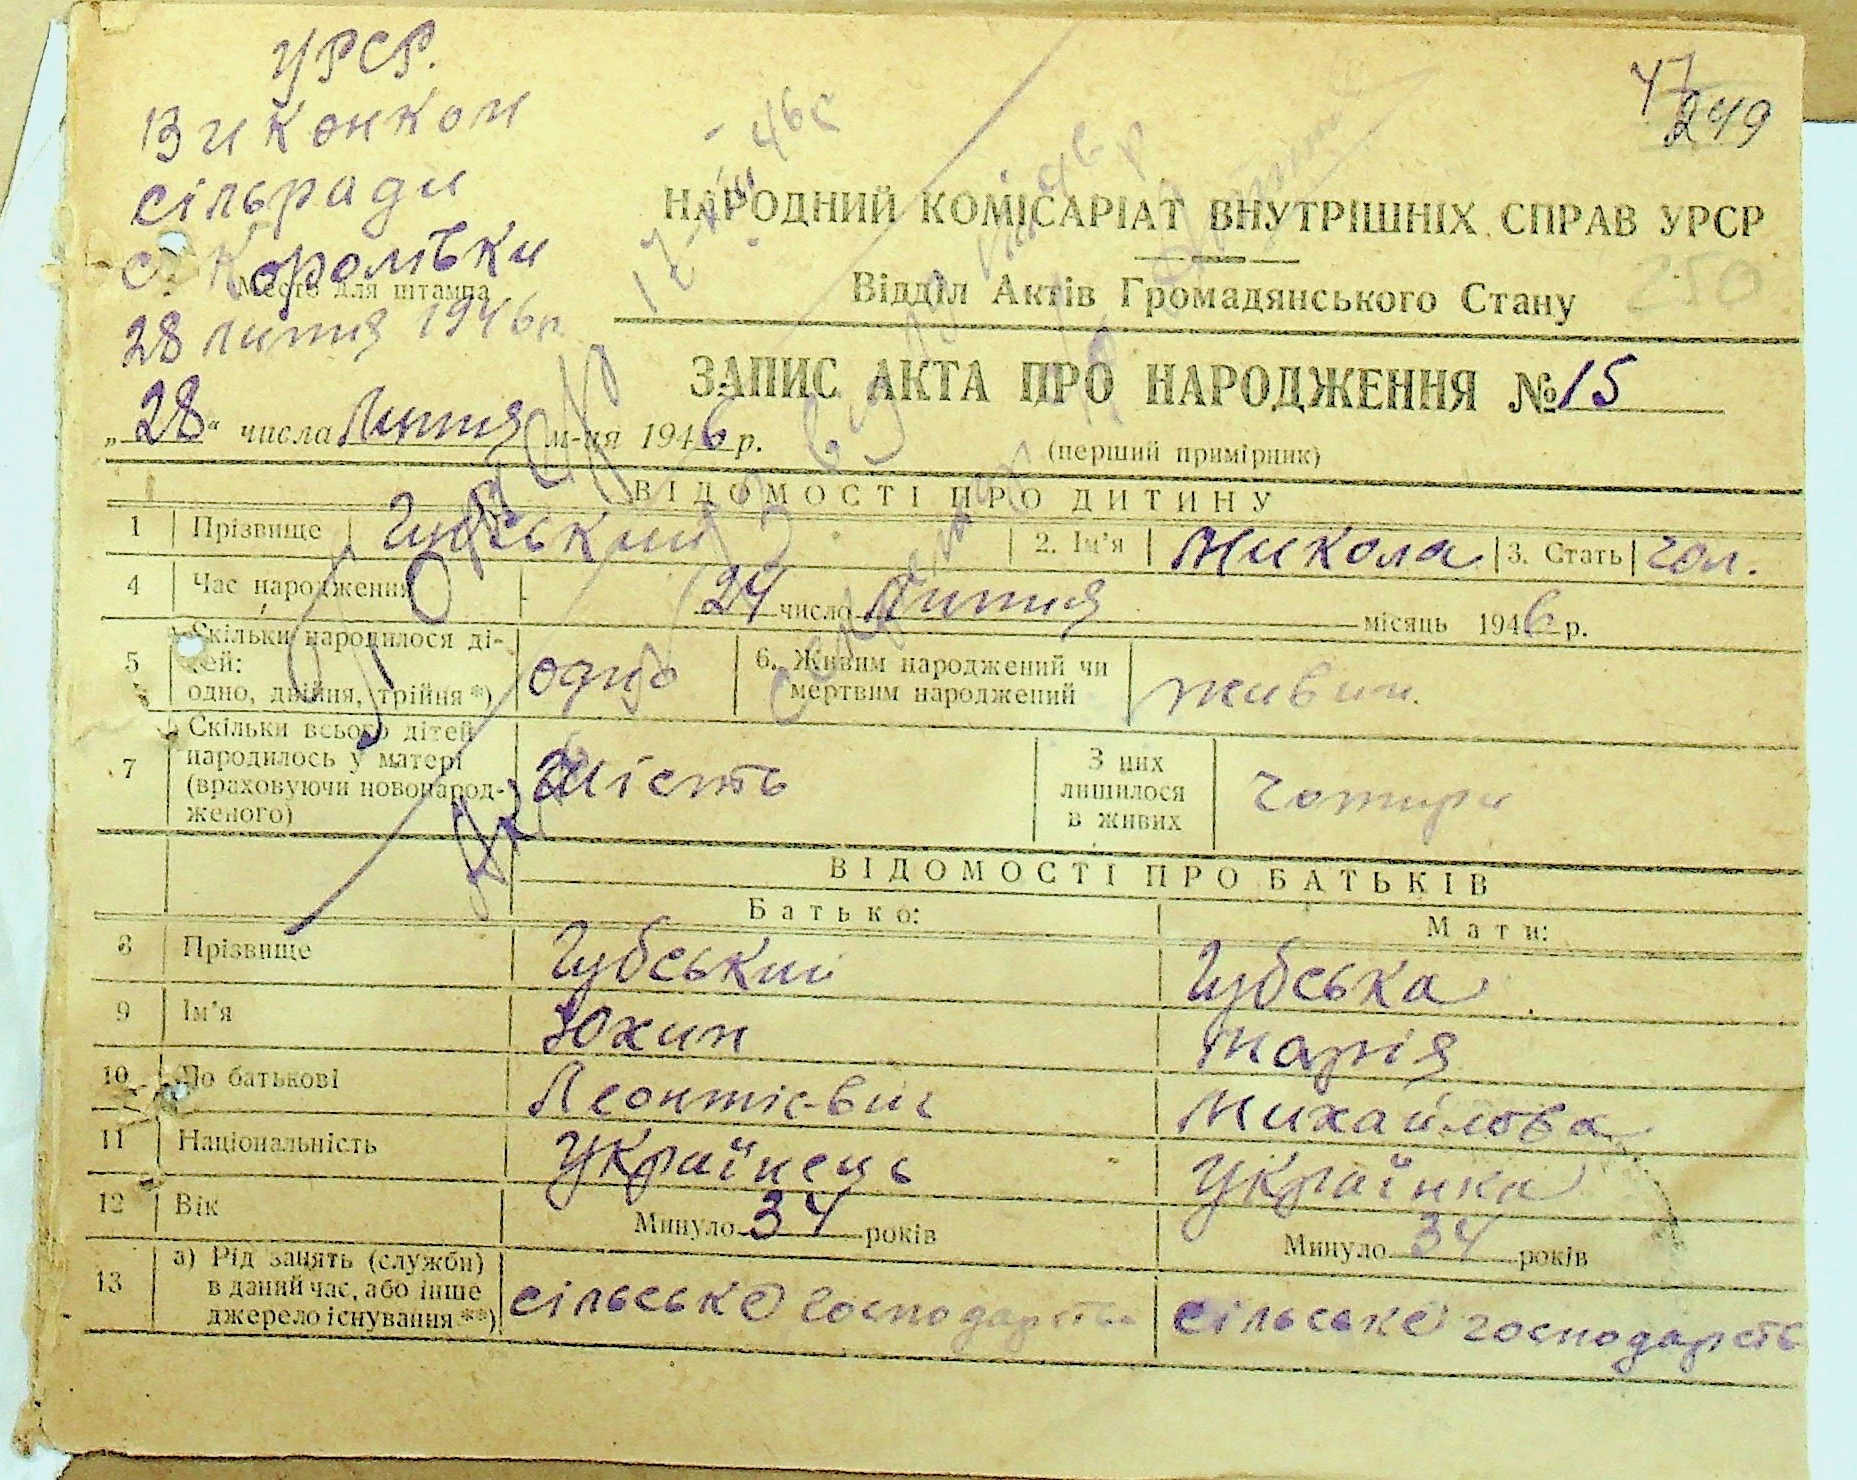 УРСР.
Виконком
сільради
с. Королівки
Место для штампа
28 липня 1946 р.
47
249
250
НАРОДНИЙ КОМІСАРІАТ ВНУТРІШНІХ СПРАВ УРСР
Відділ Актів Громадянського Стану
ЗАПИС АКТА ПРО НАРОДЖЕННЯ № 15
„28“ числа Липня м-ця 1946 р.
(перший примірник)
ВІДОМОСТІ ПРО ДИТИНУ
1 Прізвище Губський 2. Ім'я Микола 3. Стать чол.
4 Час народження 24 число Липня місяць 1946 р.
5 Скільки народилося ді-
тей:
одно, двійня, трійня *) одно 6. Живим народжений чи
мертвим народжений живим.
7 Скільки всього дітей
народилось у матері
(враховуючи новонарод-
женого) Шість З них
лишилося
в живих чотири
ВІДОМОСТІ ПРО БАТЬКІВ
Батько: Мати:
8 Прізвище Губський Губська
9 Ім'я Юхим Марія
10 По батькові Леонтієвич Михайлова
11 Національність Українець Українка
12 Вік Минуло 34 років Минуло 34 років
13 а) Рід занять (служби)
в даний час, або інше
джерело існування **) сільське господарств сільське господарств